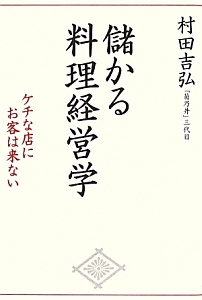 村田吉弘
「菊乃井」三代目
儲かる
料理経営学
ケチな店に
お客は来ない